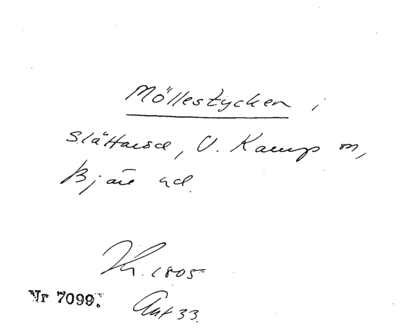 Möllestycken i
Slättaröd, V. Karup sn,
Bjäre hd.
Kr. 1805
Nr 7099. Avt 33.